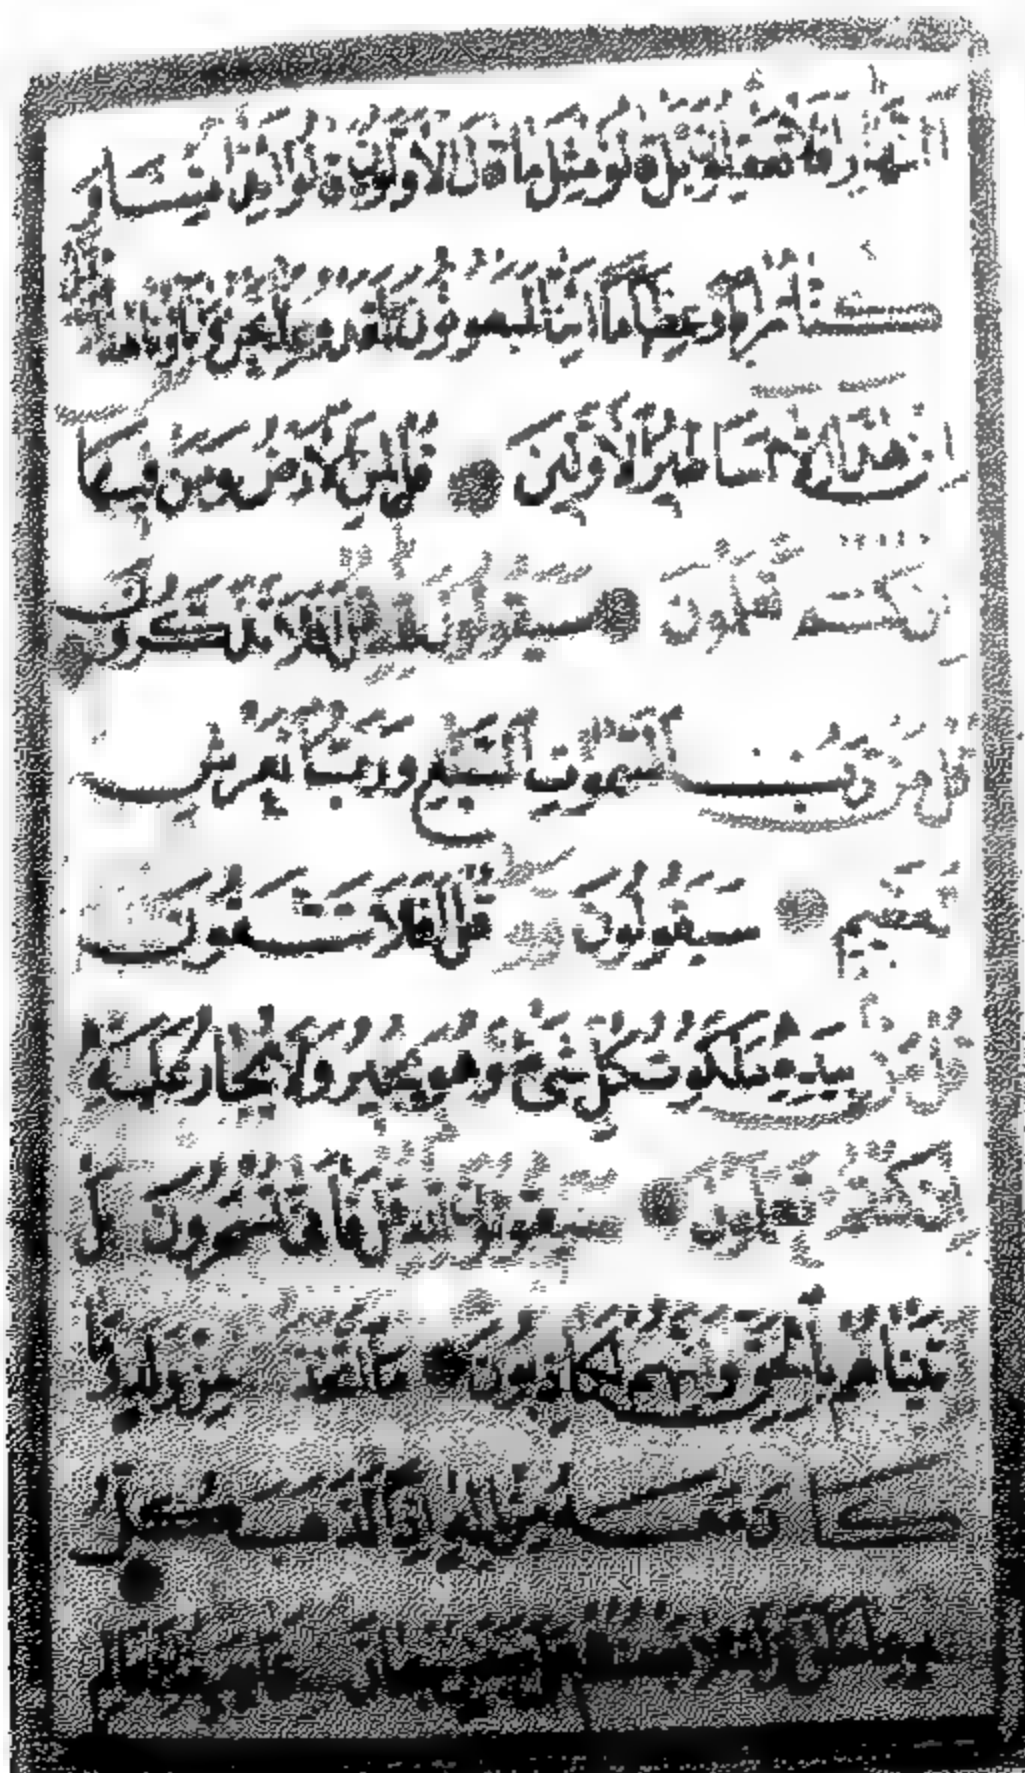 النهار افلا تعقلون بل قالوا مثل ما قال الاولون قالوا ائذا متنا و
كنا ترابا وعظاما ائنا لمبعوثون لقد وعدنا نحن واباؤنا هذا
من قبل ان هذا الا اساطير الاولين قل لمن الارض ومن فيها
ان كنتم تعلمون سيقولون لله قل افلا تذكرون
قل من رب السموات السبع ورب العرش
العظيم سيقولون لله قل افلا تتقون
قل من بيده ملكوت كل شيء وهو يجير ولا يجار عليه
ان كنتم تعلمون سيقولون لله قل فانى تسحرون بل
اتيناهم بالحق وانهم لكاذبون ما اتخذ الله من ولد وما
كان معه من اله اذا لذهب كل